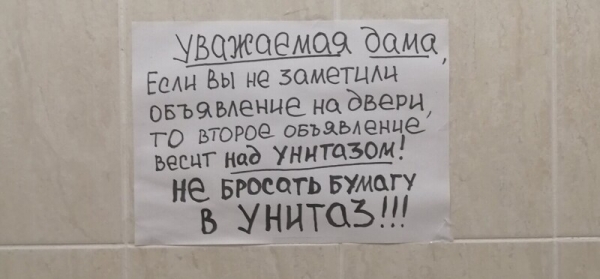 Уважаемая дама,
Если вы не заметили
объявление на двери,
то второе объявление
весит над унитазом!
не бросать бумагу
в унитаз!!!